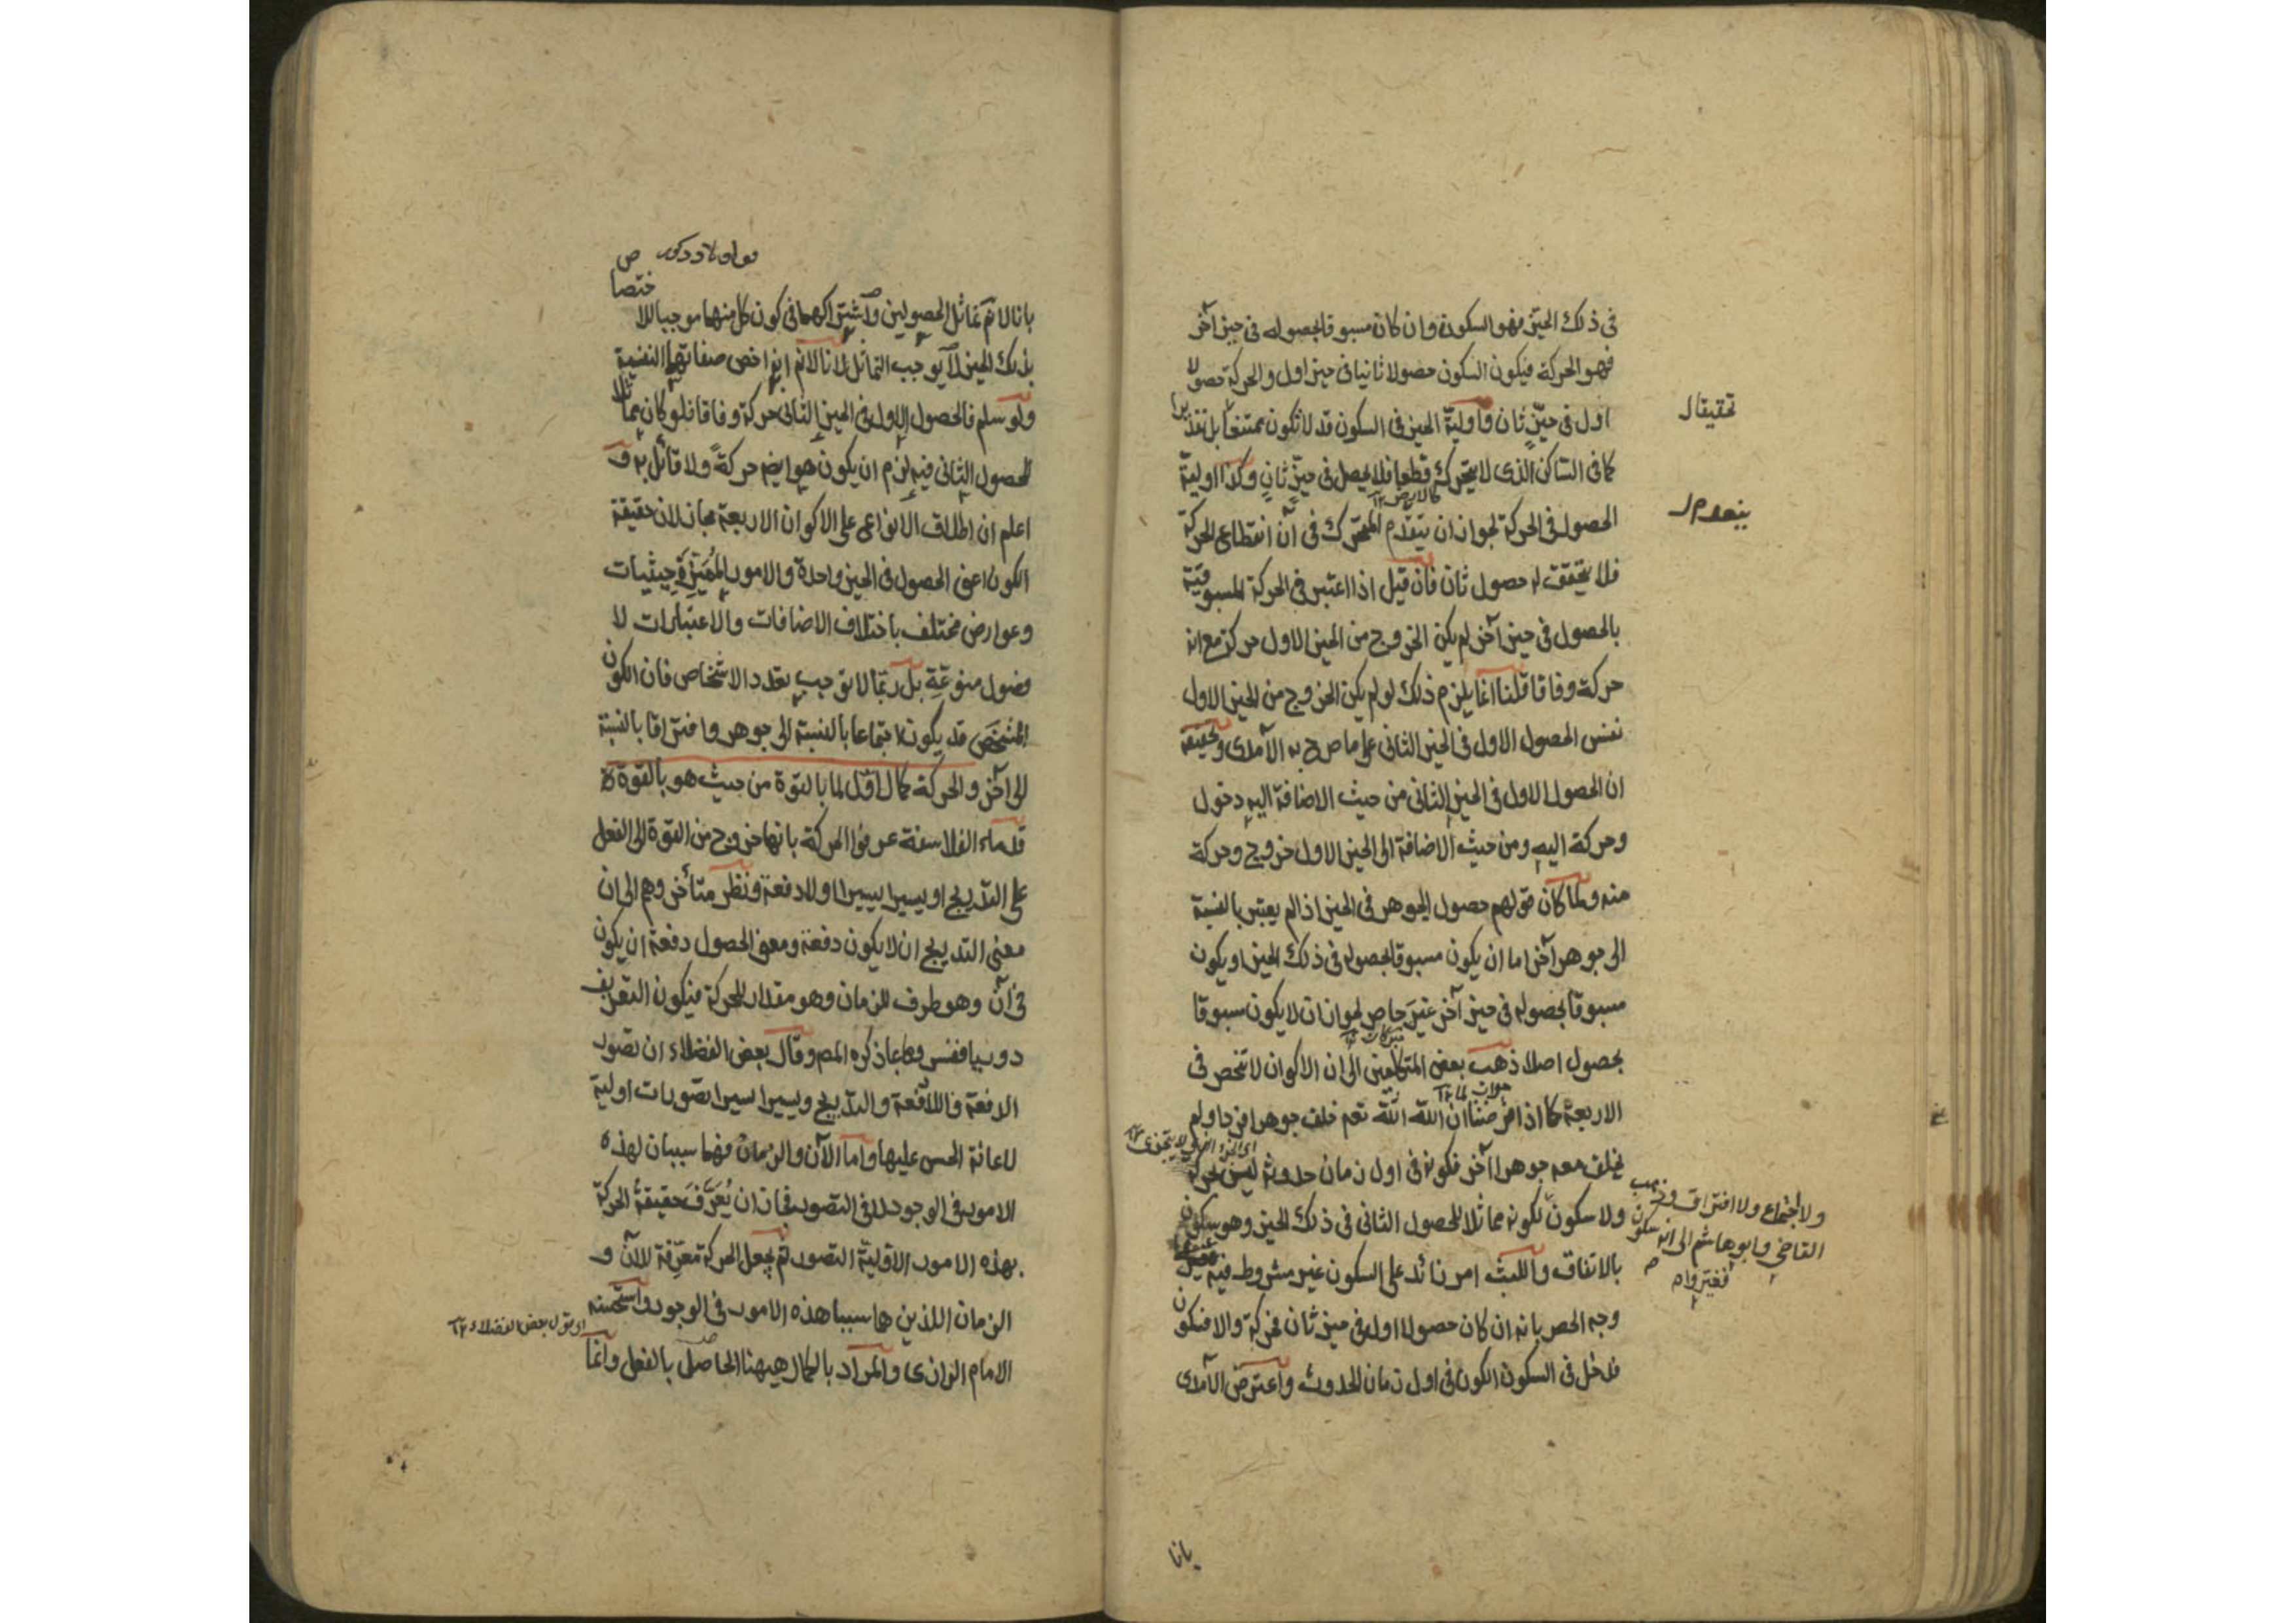 في ذلك الحيز فهو السكون وان كان مسبوقا بحصوله في حيز آخر
فهو الحركة فيكون السكون حصولا ثانيا في حيز اول والحركة حصولا
اول في حيّز ثان واولية الحيز في السكون قد لا تكون تحقيقا بل تقديرا
تحقيقا
كما في الساكن الذى لا يتحرك قطعا فلا يحصل في حيّز ثانٍ وكذا اولية
الحصول في الحركة لجواز ان ينعدم المتحرك في آن انقطاع الحركة
ينعدم
فلا يتحقق له حصول ثان فان قيل اذا اعتبر في الحركة المسبوقية
بالحصول في حيز آخر لم يكن الخروج من الحيز الاول حركة مع انه
حركة وفاقا قلنا انما يلزم ذلك لو لم يكن الخروج من الحيز الاول
نفس الحصول الاول في الحيز الثانى على ما صرح به الآمدى وتحقيقه
ان الحصول الاول في الحيز الثانى من حيث الاضافة اليه دخول
وحركة اليه ومن حيث الاضافة الى الحيز الاول خروج وحركة
منه ولما كان قولهم حصول الجوهر في الحيز اذا لم يعتبر بالنسبة
الى جوهر آخر اما ان يكون مسبوقا بحصوله في ذلك الحيز او يكون
مسبوقا بحصوله في حيز آخر غير حاصر لجواز ان لا يكون مسبوقا
بحصول اصلا ذهب بعض المتكلمين الى ان الاكوان لا تنحصر في
الاربعة كما اذا فرضنا ان الله تعم خلق جوهرا فردا ولم
يخلق معه جوهرا آخر فكونه في اول زمان حدوثه ليس بحركة
ولا سكون لكونه مماثلا للحصول الثانى في ذلك الحيز وهو سكون
ولا اجتماع ولا افتراق وذهب
القاضى وابو هاشم الى انه سكون
بالاتفاق واللبث امر زائد على السكون غير مشروط فيه
وجه الحصر بانه ان كان حصولا اولا في حيز ثان فحركة والا فسكون
فدخل في السكون الكون في اول زمان الحدوث واعترض الآمدى
بانا
بانا لا نم تماثل الحصولين واشتراكهما في كون كل منهما موجبا للاختصاص
بذلك الحيز لا يوجب التماثل لانا لا نم انه اخص صفاتهما النفسية
ولو سلم فالحصول الاول في الحيز الثانى حركة وفاقا فلو كان مماثلا
للحصول الثانى فيه لزم ان يكون هو ايضا حركةً ولا قائل به و
اعلم ان اطلاق الانواع على الاكوان الاربعة مجاز لان حقيقة
الكون اعنى الحصول في الحيز واحدة والامور المُمَيِّزة حيثيات
وعوارض مختلف باختلاف الاضافات والاعتبارات لا
فصول منوّعة بل ربّما لا توجب تعدد الاشخاص فان الكون
المشخّص قد يكون اجتماعا بالنسبة الى جوهر وافتراقا بالنسبة
الى آخر والحركة كمال اوّل لما بالقوة من حيث هو بالقوة
قدماء الفلاسفة عرفوا الحركة بانها خروج من القوة الى الفعل
على التدريج او يسيرا يسيرا او لا دفعة ونظر متأخروهم الى ان
معنى التدريج ان لا يكون دفعة ومعنى الحصول دفعة ان يكون
في آن وهو طرف للزمان وهو مقدار للحركة فيكون التعريف
دوريا ففسروها بما ذكره المصم وقال بعض الفضلاء ان تصور
الدفعة واللادفعة والتدريج ويسيرا يسيرا تصورات اولية
لاعانة الحس عليها واما الآن والزمان فهما سببان لهذه
الامور في الوجود لا في التصور فجاز ان يُعَرَّفَ حقيقةُ الحركة
بهذه الامور الاوّلية التصور ثم يجعل الحركة معرّفة للآن و
الزمان اللذين هما سببا هذه الامور في الوجود واستحسنه
الامام الرازى والمراد بالكمال ههنا الحاصل بالفعل وانما